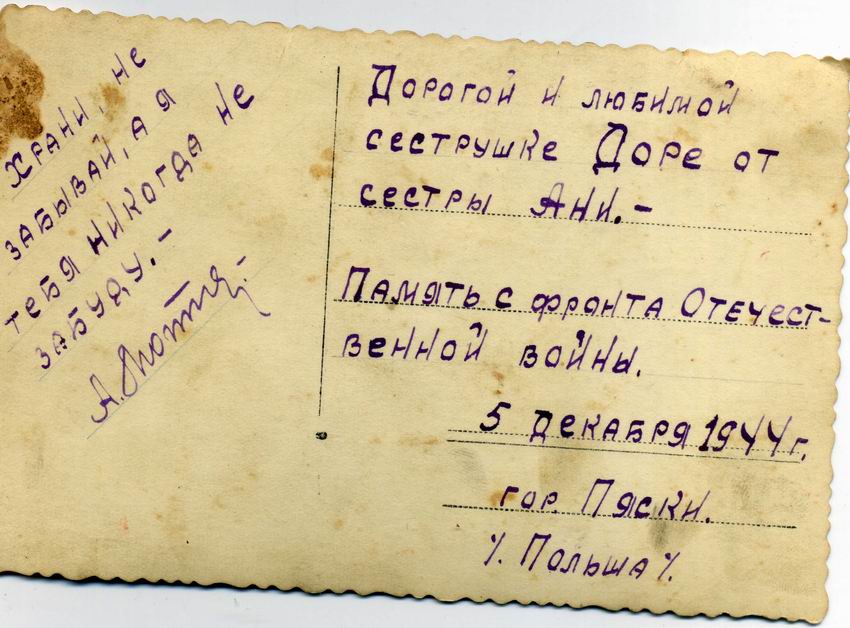 Храни, не
забывай, а я
тебя никогда не
забуду. –
Дорогой и любимой
сеструшке Доре от
сестры Ани. –
Память с фронта Отечест-
венной войны.
5 декабря 1944 г.
гор. Пяски.
%. Польша %.